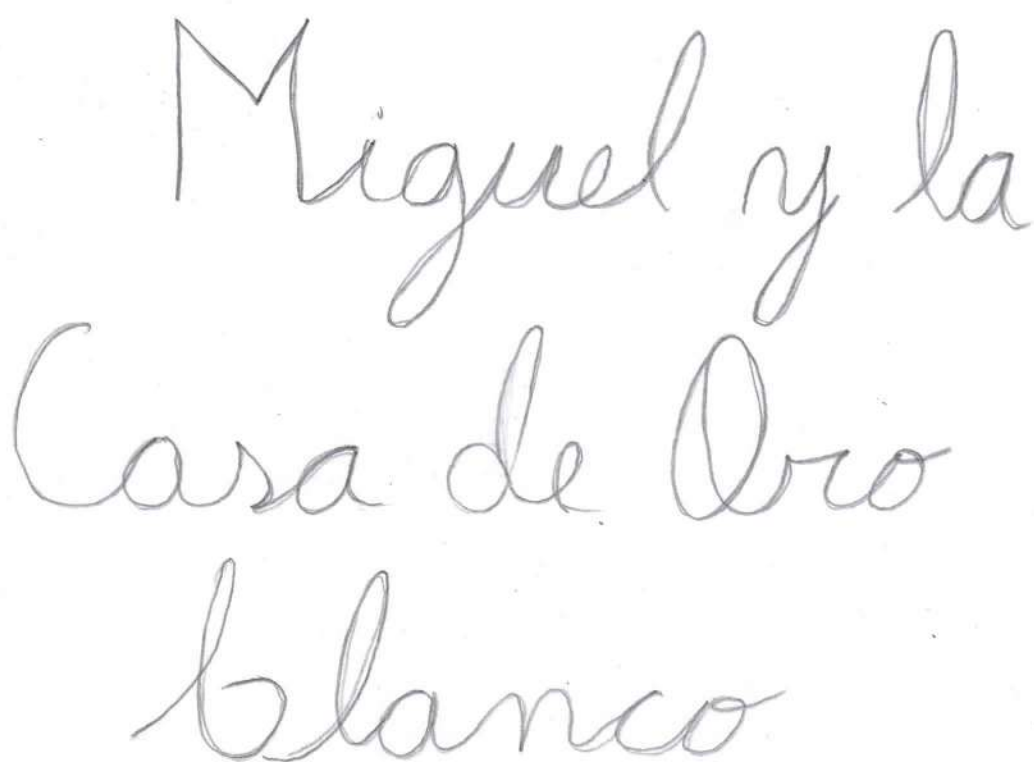 Miguel y la
Casa de Oro
blanco